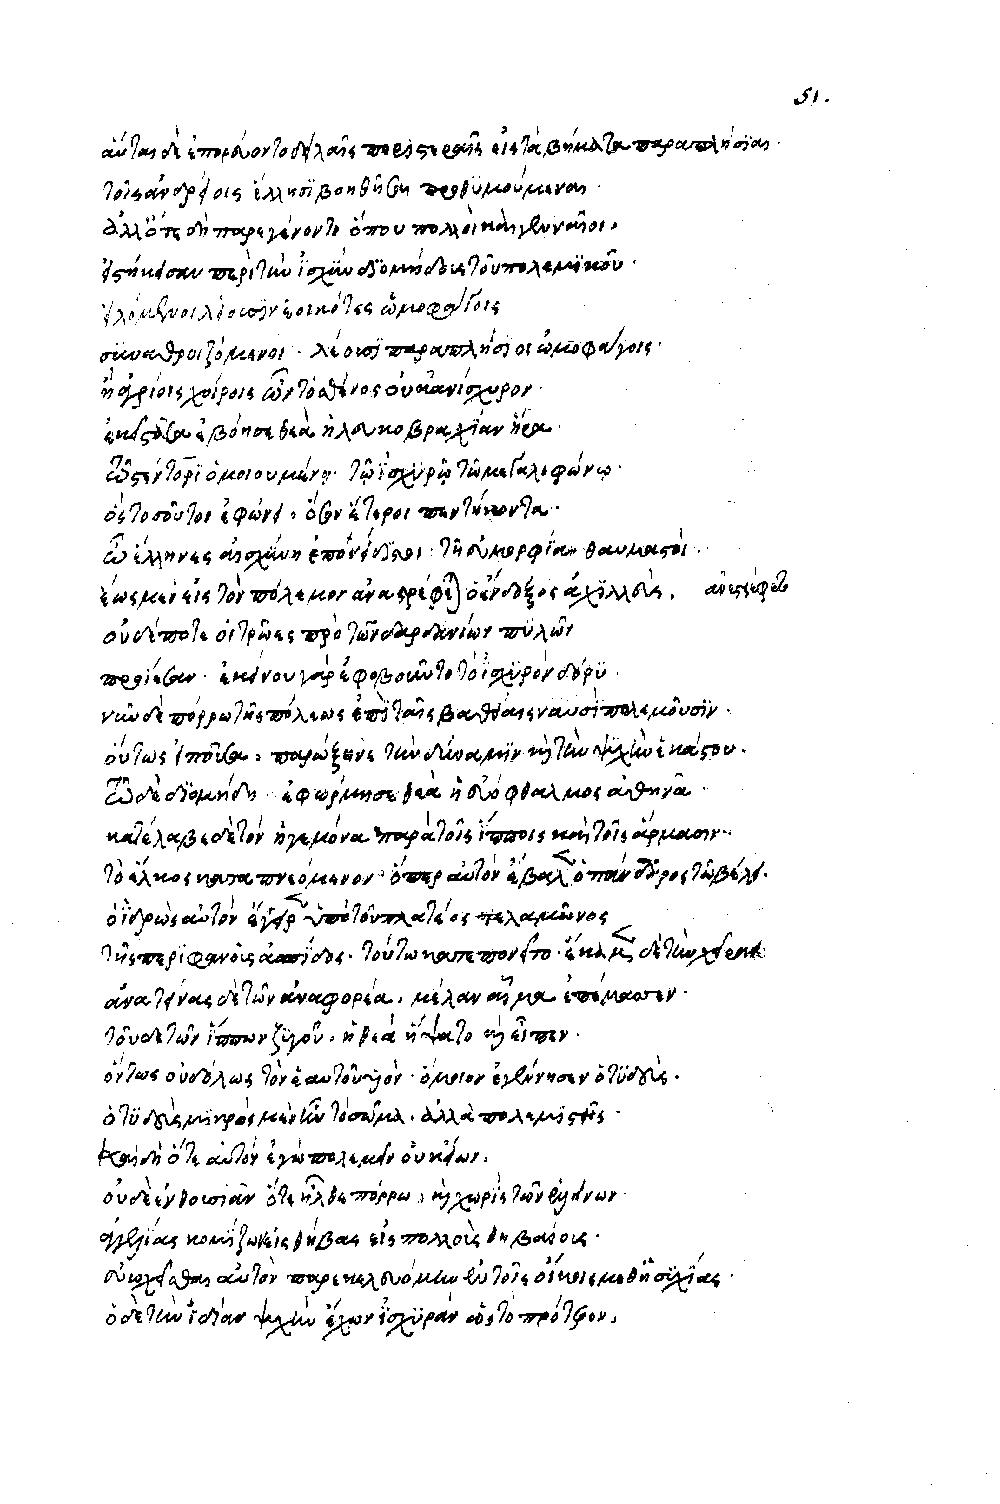 51.
αὗται δὲ ἐπορεύοντο δειλαῖς περιστεραῖς εἰς τὰ βήματα παραπλήσιαι·
τοῖς ἀνδρείοις ἕλλησι βοηθῆσαι προθυμούμεναι·
ἀλλ' ὅτε δὴ παρεγένοντο ὅπου πολλοὶ καὶ γενναῖοι,
εἱστήκεισαν περὶ τὴν ἰσχὺν διομήδους τοῦ πολεμικοῦ·
εἱλόμενοι λέουσιν ἐοικότες ὠμοφάγοις
συναθροιζόμενοι· λέουσι παραπλήσιοι ὠμοφάγοις·
ἢ ἀγρίοις χοίροις ὧν τὸ σθένος οὐκ ἀνίσχυρον·
ἐκεῖ στᾶσα ἐβόησε θεὰ ἡ λευκοβραχίων ἥρα·
τῶ στέντορι ὁμοιουμένη· τῷ ἰσχυρῷ τῷ μεγαλοφώνῳ·
ὃς τοσοῦτον ἐφώνει, ὅσον ἕτεροι πεντήκοντα·
ὦ ἕλληνες αἰσχύνη ἐπονείδιστοι· τῇ εὐμορφίᾳ θαυμαστοί·
ἕως μὲν εἰς τὸν πόλεμον ἀναστρέφετο ὁ ἔνδοξος ἀχιλλεύς, ἀνεστρέφετο
οὐδέποτε οἱ τρῶες πρὸ τῶν δαρδανίων πυλῶν
προίεσαν· ἐκείνου γὰρ ἐφοβοῦντο τὸ ἰσχυρὸν δόρυ·
νῦν δὲ πόρρω τῆς πόλεως ἐπὶ ταῖς βαθείαις ναυσὶ πολεμοῦσιν·
οὕτως εἰποῦσα, παρώξυνε τὴν δύναμιν καὶ τὴν ψυχὴν ἑκάστου·
τῶ δὲ διομήδη· ἐφώρμησε θεὰ ἡ εὐόφθαλμος ἀθηνᾶ·
κατέλαβε δὲ τὸν ἡγεμόνα παρὰ τοῖς ἵπποις καὶ τοῖς ἅρμασιν·
τὸ ἕλκος καταπνεόμενον· ὅπερ αὐτὸν ἔβαλεν ὁ πάνδαρος τῷ βέλει·
ὁ ἱδρὼς αὐτὸν ἔτειρεν ὑπὸ τοῦ πλατέος τελαμῶνος
τῆς περιφανοῦς ἀσπίδος· τούτω κατεπονεῖτο· ἔκαμνε δὲ τὴν χεῖρα
ἀνατείνας δὲ τὸν ἀναφορέα, μέλαν αἷμα ἀπέμασσεν·
τοῦ δὲ τῶν ἵππων ζυγοῦ, ἡ θεὰ ἥψατο καὶ εἶπεν·
ὄντως οὐδόλως τὸν ἑαυτοῦ υἱὸν· ὅμοιον ἐγέννησεν ὁ τυδεύς·
ὁ τυδεὺς μικρὸς μὲν ἦν τὸ σῶμα· ἀλλὰ πολεμιστής·
καὶ δὴ ὅτε αὐτὸν ἐγὼ πολεμεῖν οὐκ εἴων,
οὐδὲ ἐνθουσιᾶν ὅτε ἦλθε πόρρω, καὶ χωρὶς τῶν ἑλλήνων·
ἀγγελίας κομίζων εἰς θήβας εἰς πολλοὺς θηβαίους·
εὐωχεῖσθαι αὐτὸν παρεκελευόμην ἐν τοῖς οἴκοις μεθ' ἡσυχίας·
ὁ δὲ τὴν ἰδίαν ψυχὴν ἔχων ἰσχυρὰν ὡς τὸ πρότερον,